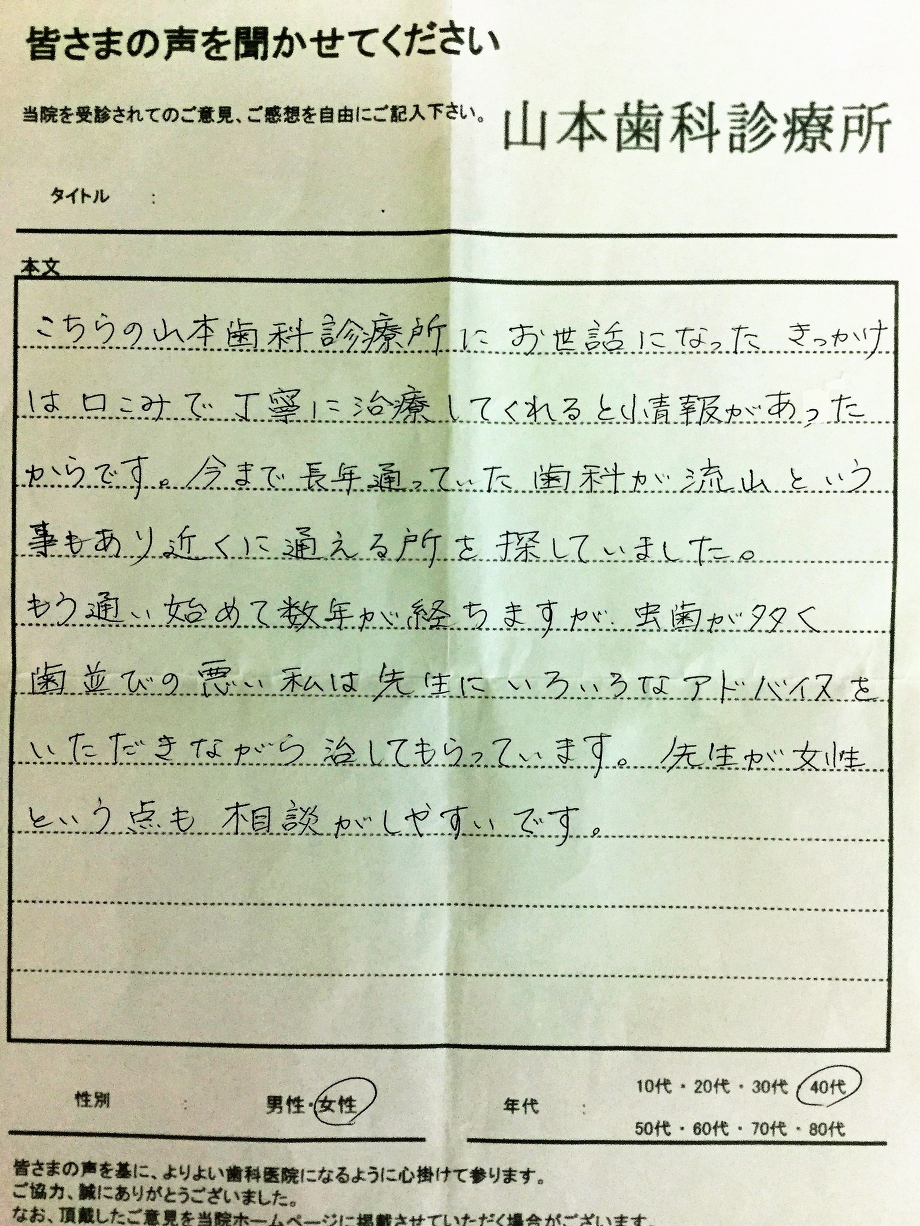 皆さまの声を聞かせてください
当院を受診されてのご意見、ご感想を自由にご記入下さい。
山本歯科診療所
タイトル :
本文
こちらの山本歯科診療所に お世話になった きっかけ
は 口こみで 丁寧に治療してくれると情報があった
からです。今まで長年通っていた歯科が流山という
事もあり近くに通える所を探していました。
もう通い始めて数年が経ちますが、虫歯が多く
歯並びの悪い私は先生にいろいろなアドバイスを
いただきながら治してもらっています。先生が女性
という点も相談がしやすいです。
性別 : 男性・女性
年代 : 10代・20代・30代・40代
50代・60代・70代・80代
皆さまの声を基に、よりよい歯科医院になるように心掛けて参ります。
ご協力、誠にありがとうございました。
なお、頂戴したご意見を当院ホームページに掲載させていただく場合がございます。